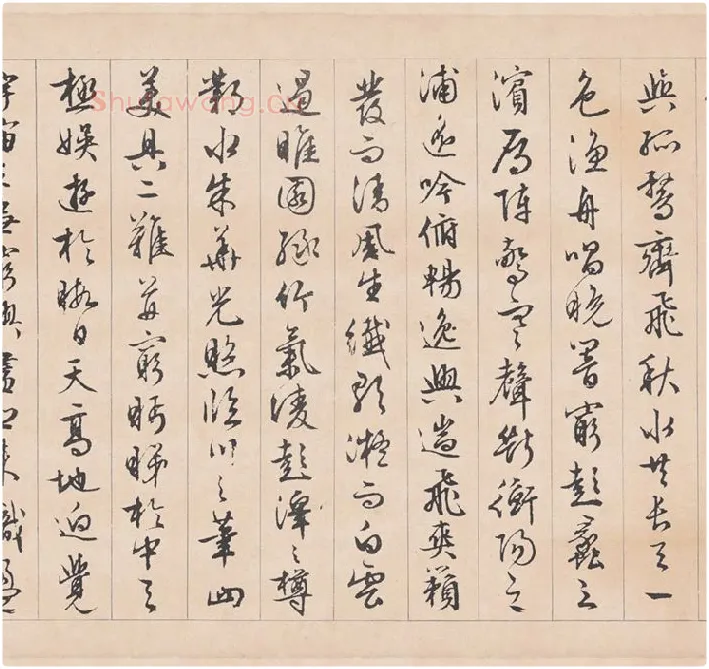 與孤鶩齊飛秋水共長天一
色漁舟唱晚響窮彭蠡之
濱雁陣驚寒聲斷衡陽之
浦遙吟俯暢逸興遄飛爽籟
發而清風生纖歌凝而白雲
遏睢園綠竹氣凌彭澤之樽
鄴水朱華光照臨川之筆四
美具二難并窮眄睇於中天
極娛遊於暇日天高地迥覺
宇宙之無窮興盡悲來識盈
Shufawang.cn